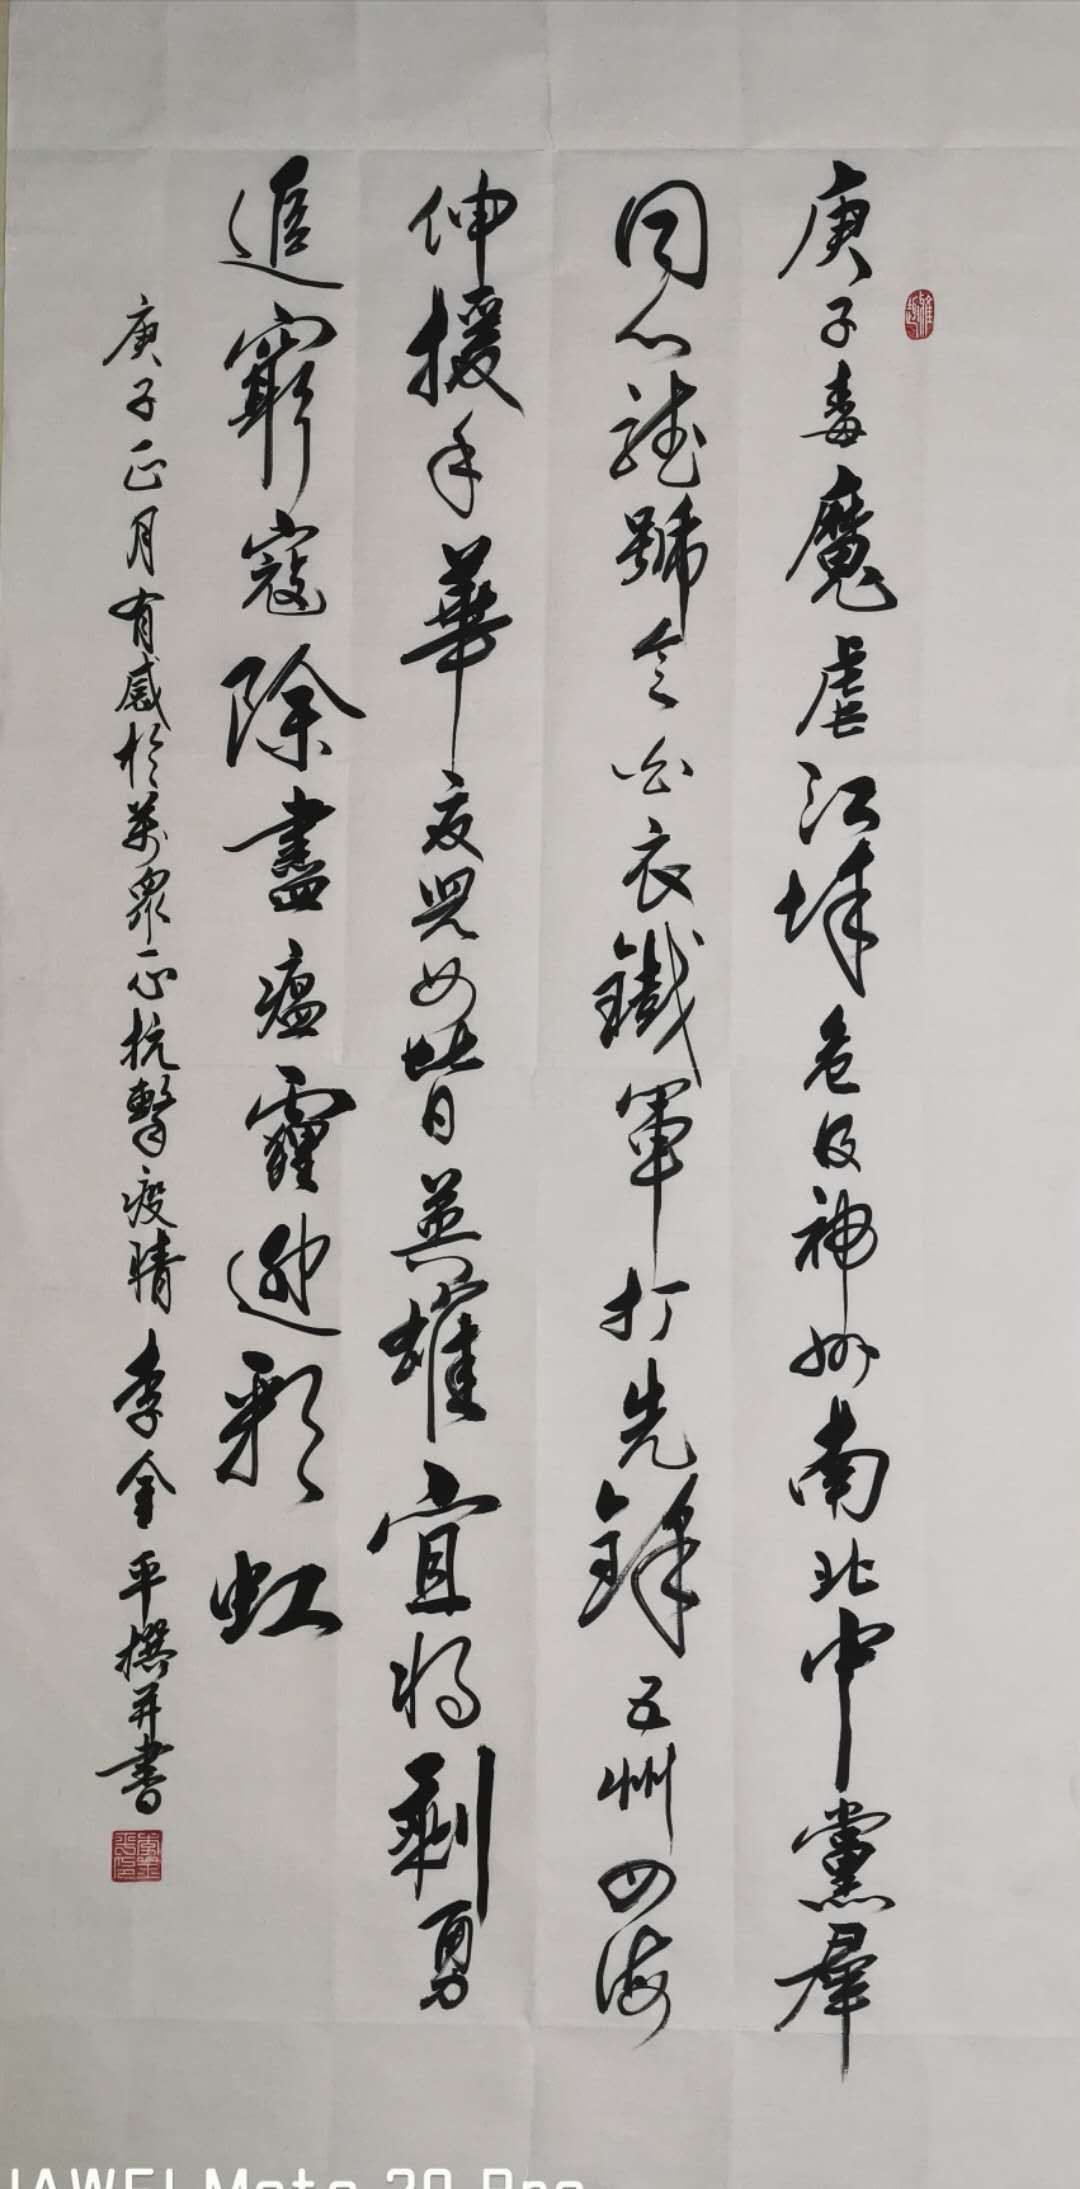 庚子毒魔虐江城危及神州南北中黨群
同心聽號令白衣鐵軍打先鋒五州四海
伸援手華夏兒女皆英雄宜将剩勇
追窮寇除盡瘟霾迎彩虹
庚子正月有感於萬眾一心抗擊疫情李金平撰并書